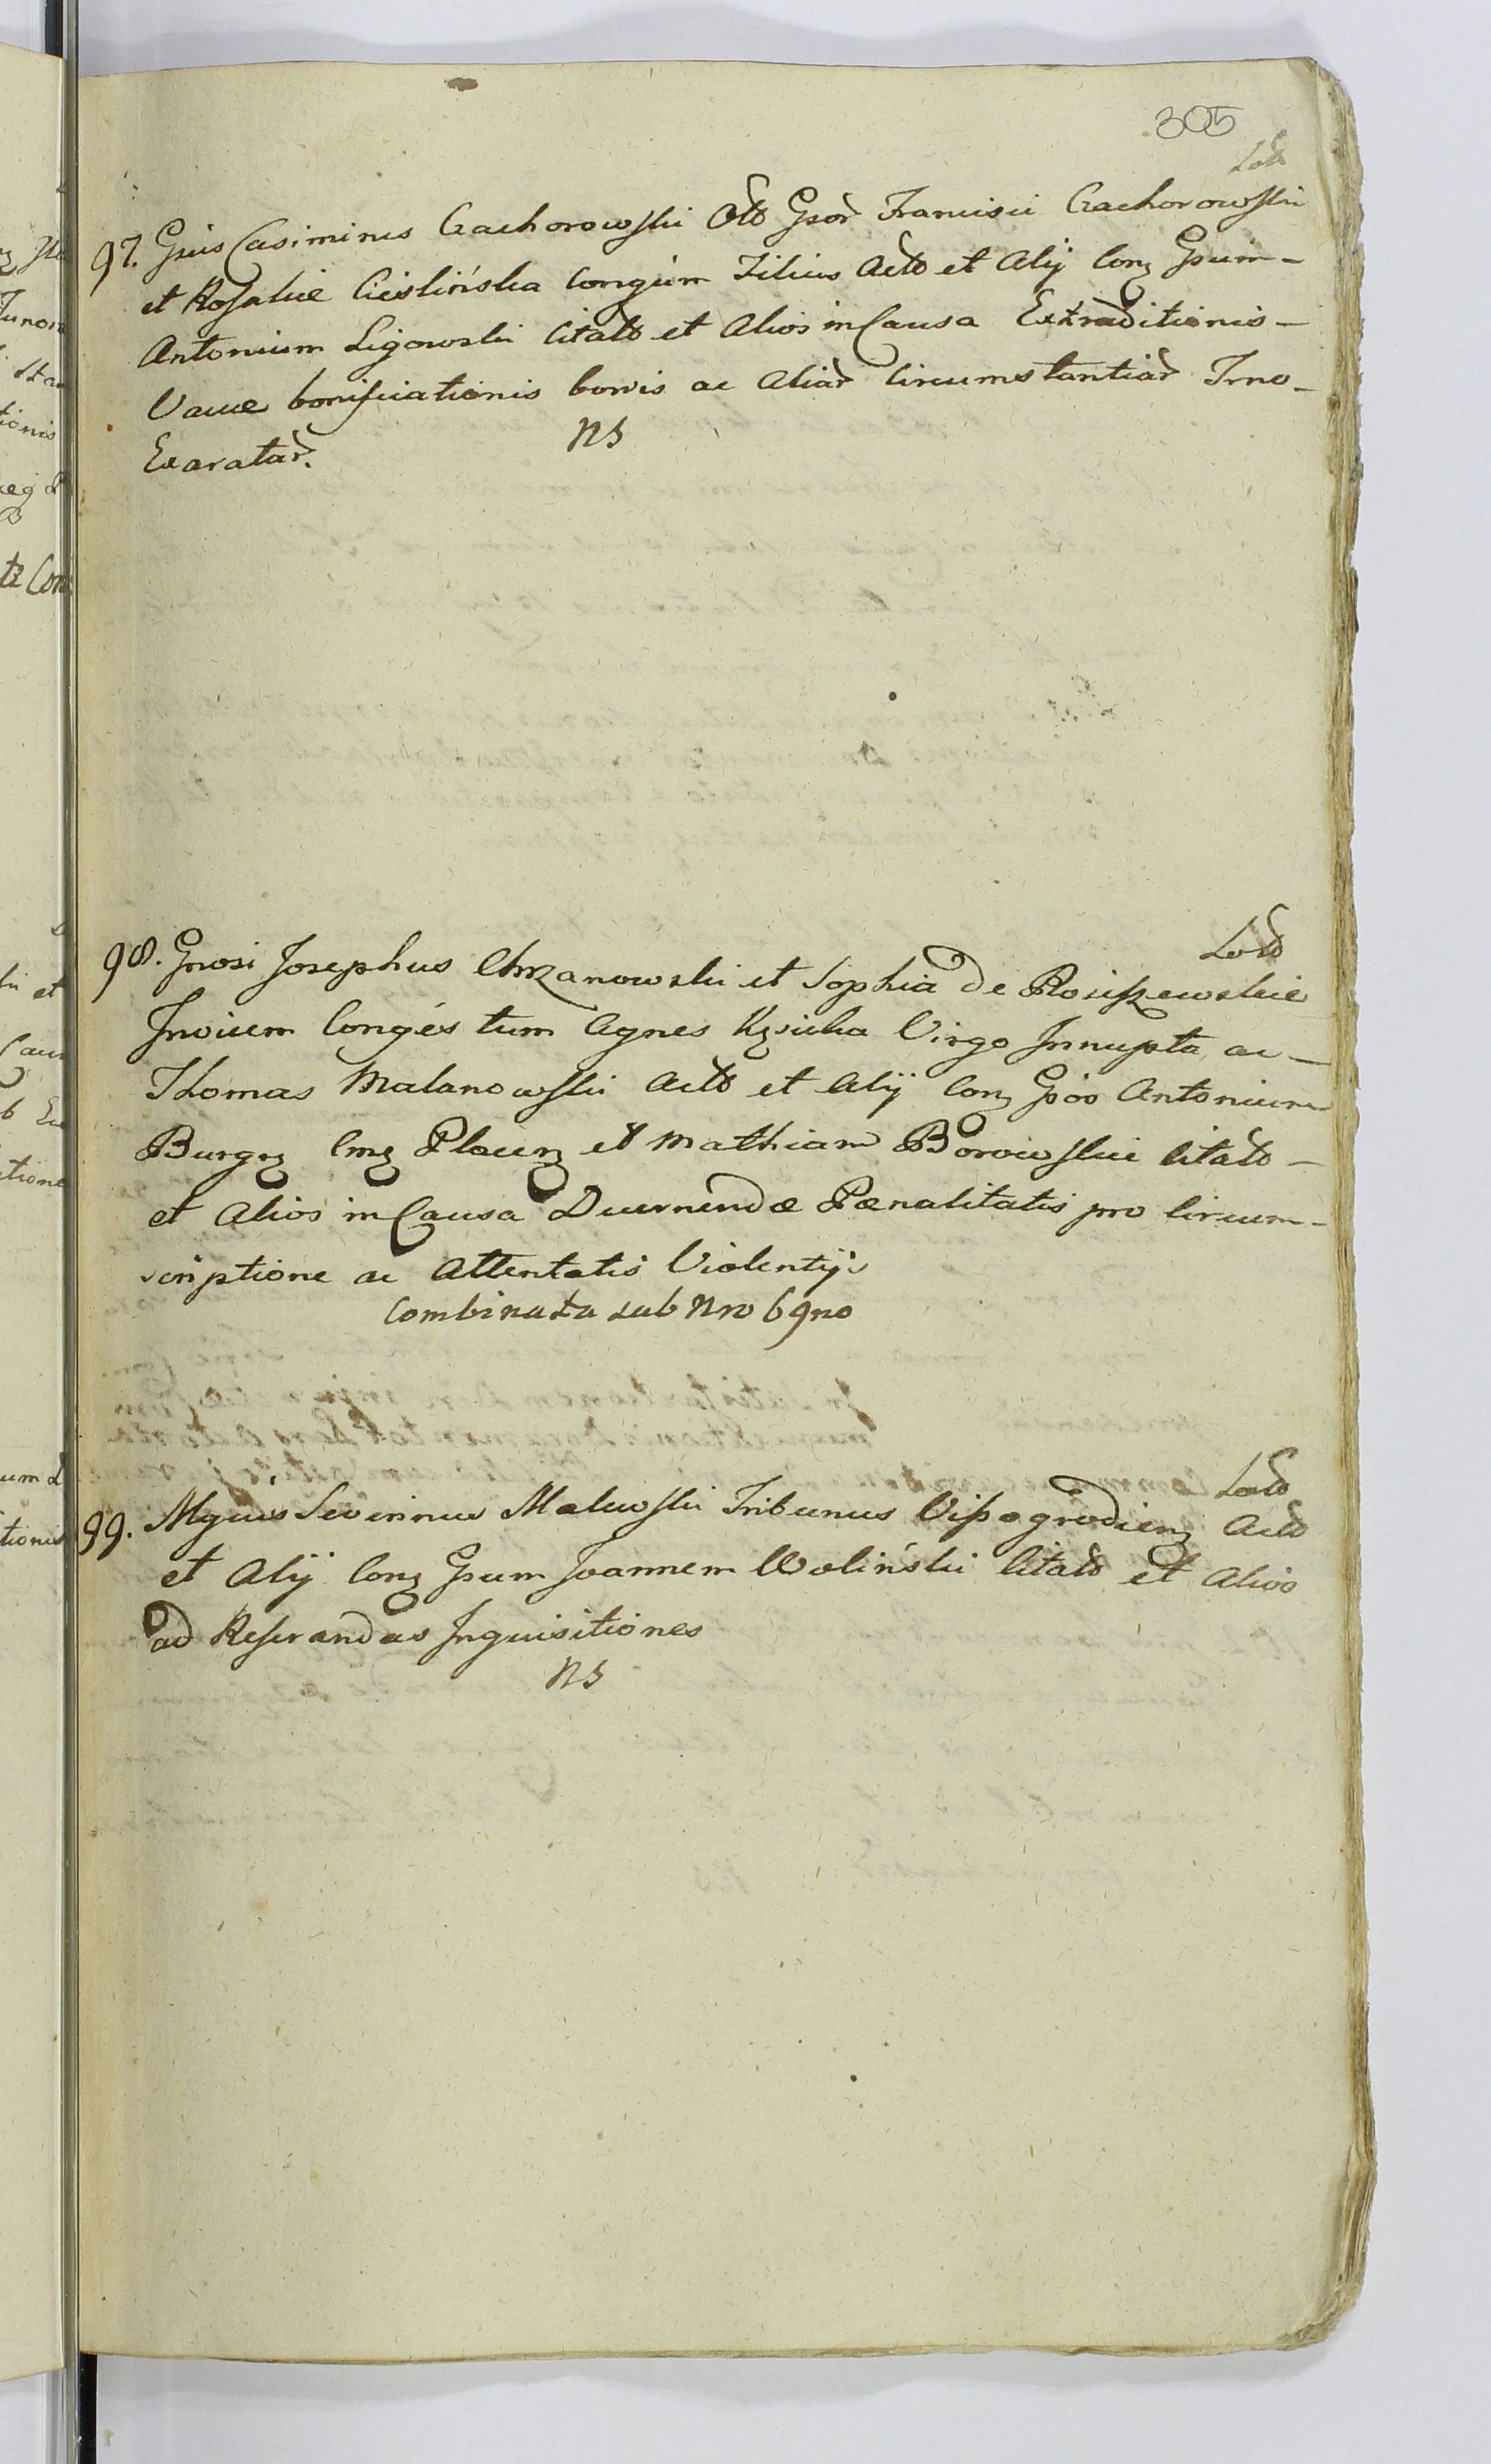 305
Lath
97. Gsus Casimirus Czachorowski Olb Gsor Francisci Czachorowski
et Rosaliæ Cieslińska Congum Filius Actb et Alij Conz Gsum-
Antonium Ligowski Citatb et Alios in Causa Extraditionis-
Vaccæ bonificationis bovis ac Aliar circumstantiar Trno-
Exaratar.
NS
Latb
98. Gnosi Josephus Chrzanowski et Sophia de Rosciszewskie
Invicem Conges tum Agnes Virgo Innupta ac-
Thomas Malanowski Actb et Alij Conz Gsos Antonium
Burgrz Cmz Plocenz et Mathiam Borowskie Citatb-
et Alios in Causa Decernendæ Pœnalitatis pro Circum-
scriptione ac Attentatis Violentijs
Combinata sub Nro 69no
Latb
99. Mgcus Severinus Malewski Tribunus Vissogrodienz Actb
et Alij Conz Gsum Joannem Woliński Citatb et Alios
ad Reserandas Inquisitiones
NS